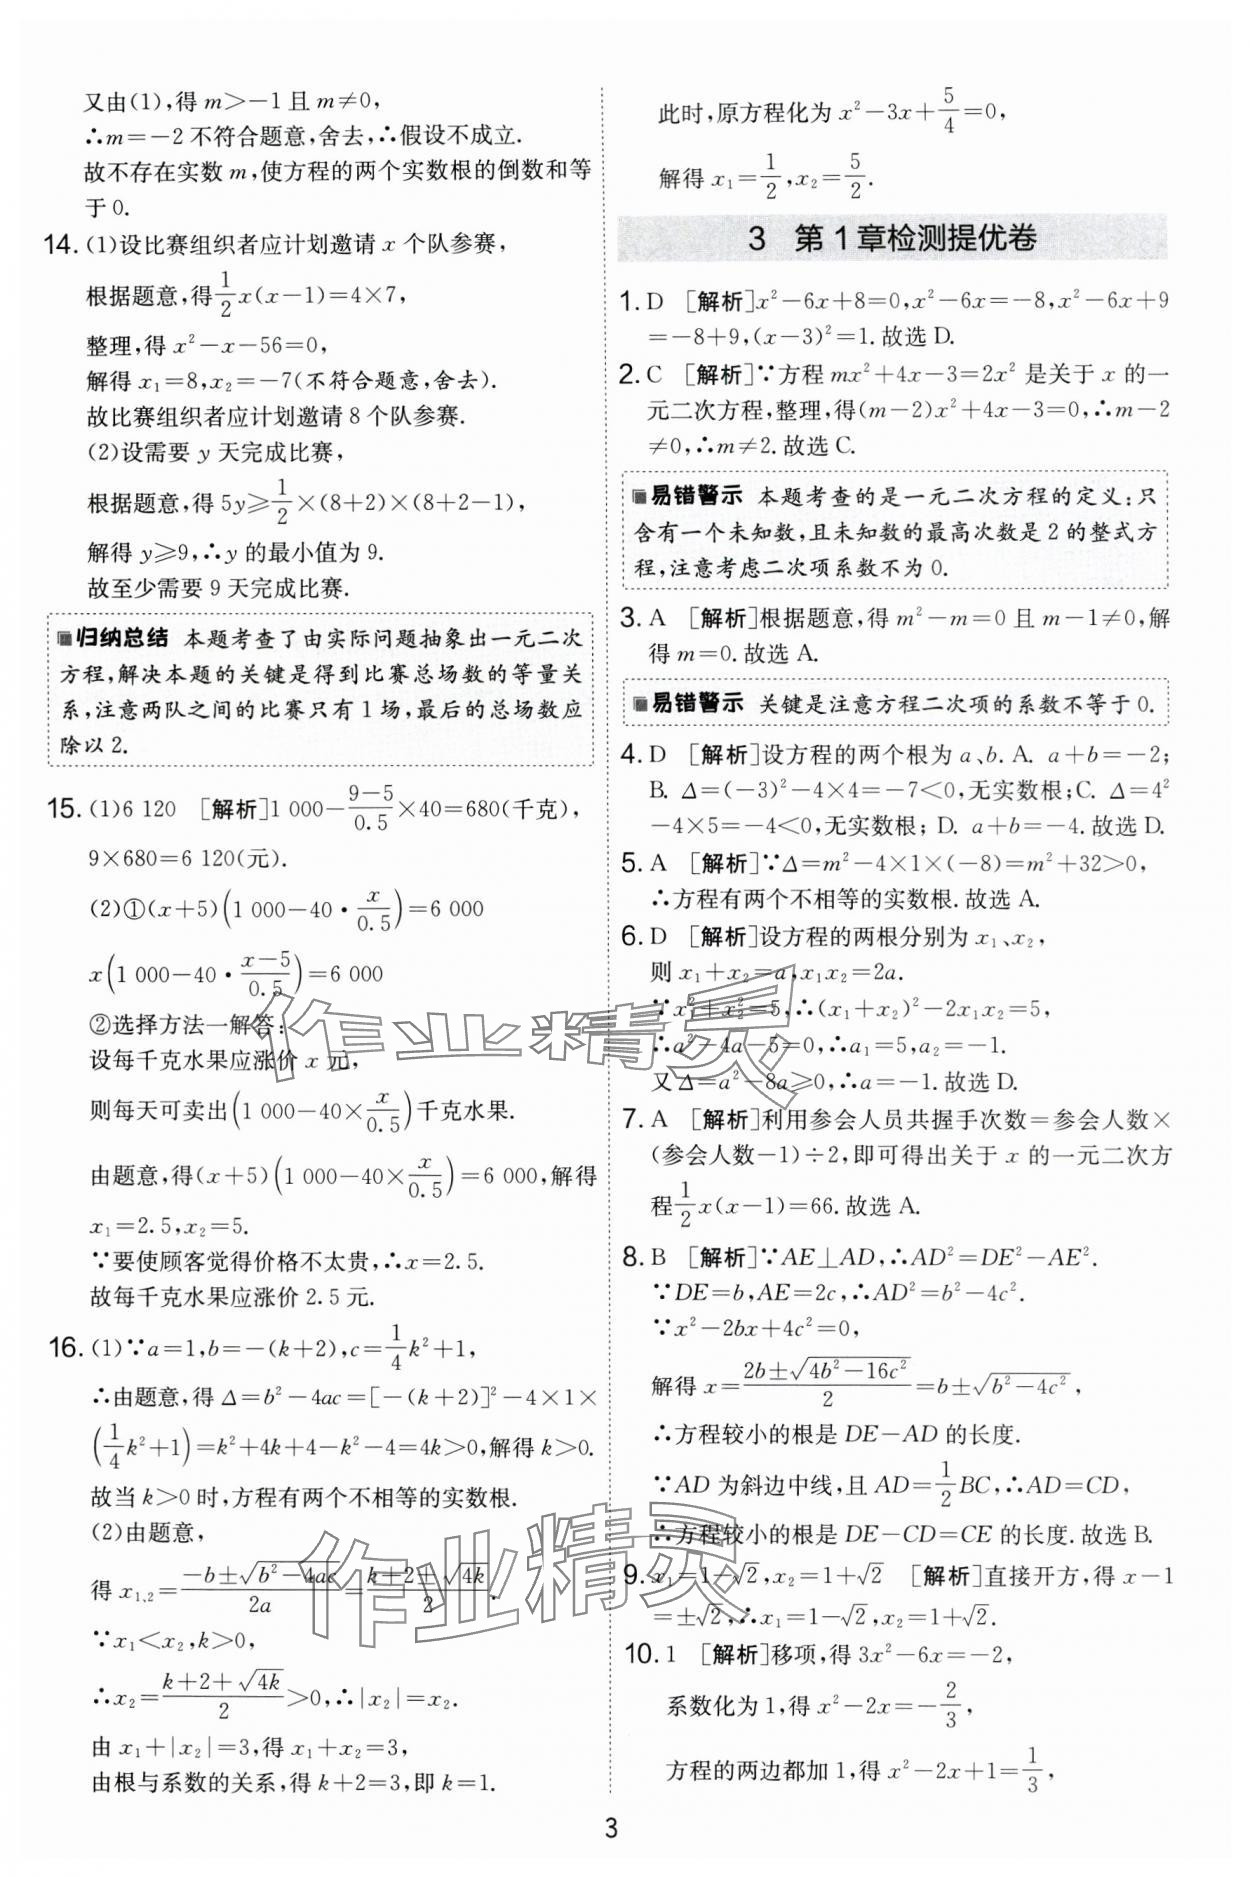 又由(1),得 m>-1 且 m≠0,
∴m=-2 不符合题意,舍去,∴假设不成立.
故不存在实数 m,使方程的两个实数根的倒数和等
于 0.
14. (1)设比赛组织者应计划邀请 x 个队参赛,
根据题意,得\frac{1}{2}x(x-1)=4×7,
整理,得 x²-x-56=0,
解得 x₁=8,x₂=-7(不符合题意,舍去).
故比赛组织者应计划邀请 8 个队参赛.
(2)设需要 y 天完成比赛,
根据题意,得 5y≥\frac{1}{2}×(8+2)×(8+2-1),
解得 y≥9,∴y 的最小值为 9.
故至少需要 9 天完成比赛.
归纳总结 本题考查了由实际问题抽象出一元二次
方程,解决本题的关键是得到比赛总场数的等量关
系,注意两队之间的比赛只有 1 场,最后的总场数应
除以 2.
15. (1)6 120 [解析]1 000-\frac{9-5}{0.5}×40=680(千克),
9×680=6 120(元).
(2)①(x+5)(1 000-40·\frac{x}{0.5})=6 000
x(1 000-40·\frac{x-5}{0.5})=6 000
②选择方法一解答:
设每千克水果应涨价 x 元,
则每天可卖出(1 000-40×\frac{x}{0.5})千克水果.
由题意,得(x+5)(1 000-40×\frac{x}{0.5})=6 000,解得
x₁=2.5,x₂=5.
∵要使顾客觉得价格不太贵,∴x=2.5.
故每千克水果应涨价 2.5 元.
16. (1)∵a=1,b=-(k+2),c=\frac{1}{4}k²+1,
∴由题意,得 Δ=b²-4ac=[-(k+2)]²-4×1×
(\frac{1}{4}k²+1)=k²+4k+4-k²-4=4k>0,解得 k>0.
故当 k>0 时,方程有两个不相等的实数根.
(2)由题意,
得 x₁,₂=\frac{-b±\sqrt{b²-4ac}}{2a}=\frac{k+2±\sqrt{4k}}{2}.
∵x₁<x₂,k>0,
∴x₂=\frac{k+2+\sqrt{4k}}{2}>0,∴|x₂|=x₂.
由 x₁+|x₂|=3,得 x₁+x₂=3,
由根与系数的关系,得 k+2=3,即 k=1.
此时,原方程化为 x²-3x+\frac{5}{4}=0,
解得 x₁=\frac{1}{2},x₂=\frac{5}{2}.
3 第 1 章检测提优卷
1. D [解析]x²-6x+8=0,x²-6x=-8,x²-6x+9
=-8+9,(x-3)²=1.故选 D.
2. C [解析]∵方程 mx²+4x-3=2x² 是关于 x 的一
元二次方程,整理,得(m-2)x²+4x-3=0,∴m-2
≠0,∴m≠2.故选 C.
易错警示 本题考查的是一元二次方程的定义:只
含有一个未知数,且未知数的最高次数是 2 的整式方
程,注意考虑二次项系数不为 0.
3. A [解析]根据题意,得 m²-m=0 且 m-1≠0,解
得 m=0.故选 A.
易错警示 关键是注意方程二次项的系数不等于 0.
4. D [解析]设方程的两个根为 a、b. A. a+b=-2;
B. Δ=(-3)²-4×4=-7<0,无实数根;C. Δ=4²
-4×5=-4<0,无实数根; D. a+b=-4.故选 D.
5. A [解析]∵Δ=m²-4×1×(-8)=m²+32>0,
∴方程有两个不相等的实数根.故选 A.
6. D [解析]设方程的两根分别为 x₁、x₂,
则 x₁+x₂=a,x₁x₂=2a.
∵x₁²+x₂²=5,∴(x₁+x₂)²-2x₁x₂=5,
∴a²-4a-5=0,∴a₁=5,a₂=-1.
又 Δ=a²-8a≥0,∴a=-1.故选 D.
7. A [解析]利用参会人员共握手次数=参会人数×
(参会人数-1)÷2,即可得出关于 x 的一元二次方
程\frac{1}{2}x(x-1)=66.故选 A.
8. B [解析]∵AE⊥AD,∴AD²=DE²-AE².
∵DE=b,AE=2c,∴AD²=b²-4c².
∵x²-2bx+4c²=0,
解得 x=\frac{2b±\sqrt{4b²-16c²}}{2}=b±\sqrt{b²-4c²},
∴方程较小的根是 DE-AD 的长度.
∵AD 为斜边中线,且 AD=\frac{1}{2}BC,∴AD=CD,
∴方程较小的根是 DE-CD=CE 的长度.故选 B.
9. x₁=1-√2,x₂=1+√2 [解析]直接开方,得 x-1
=±√2,∴x₁=1-√2,x₂=1+√2.
10. 1 [解析]移项,得 3x²-6x=-2,
系数化为 1,得 x²-2x=-\frac{2}{3},
方程的两边都加 1,得 x²-2x+1=\frac{1}{3},
3
作业精灵
作业精灵